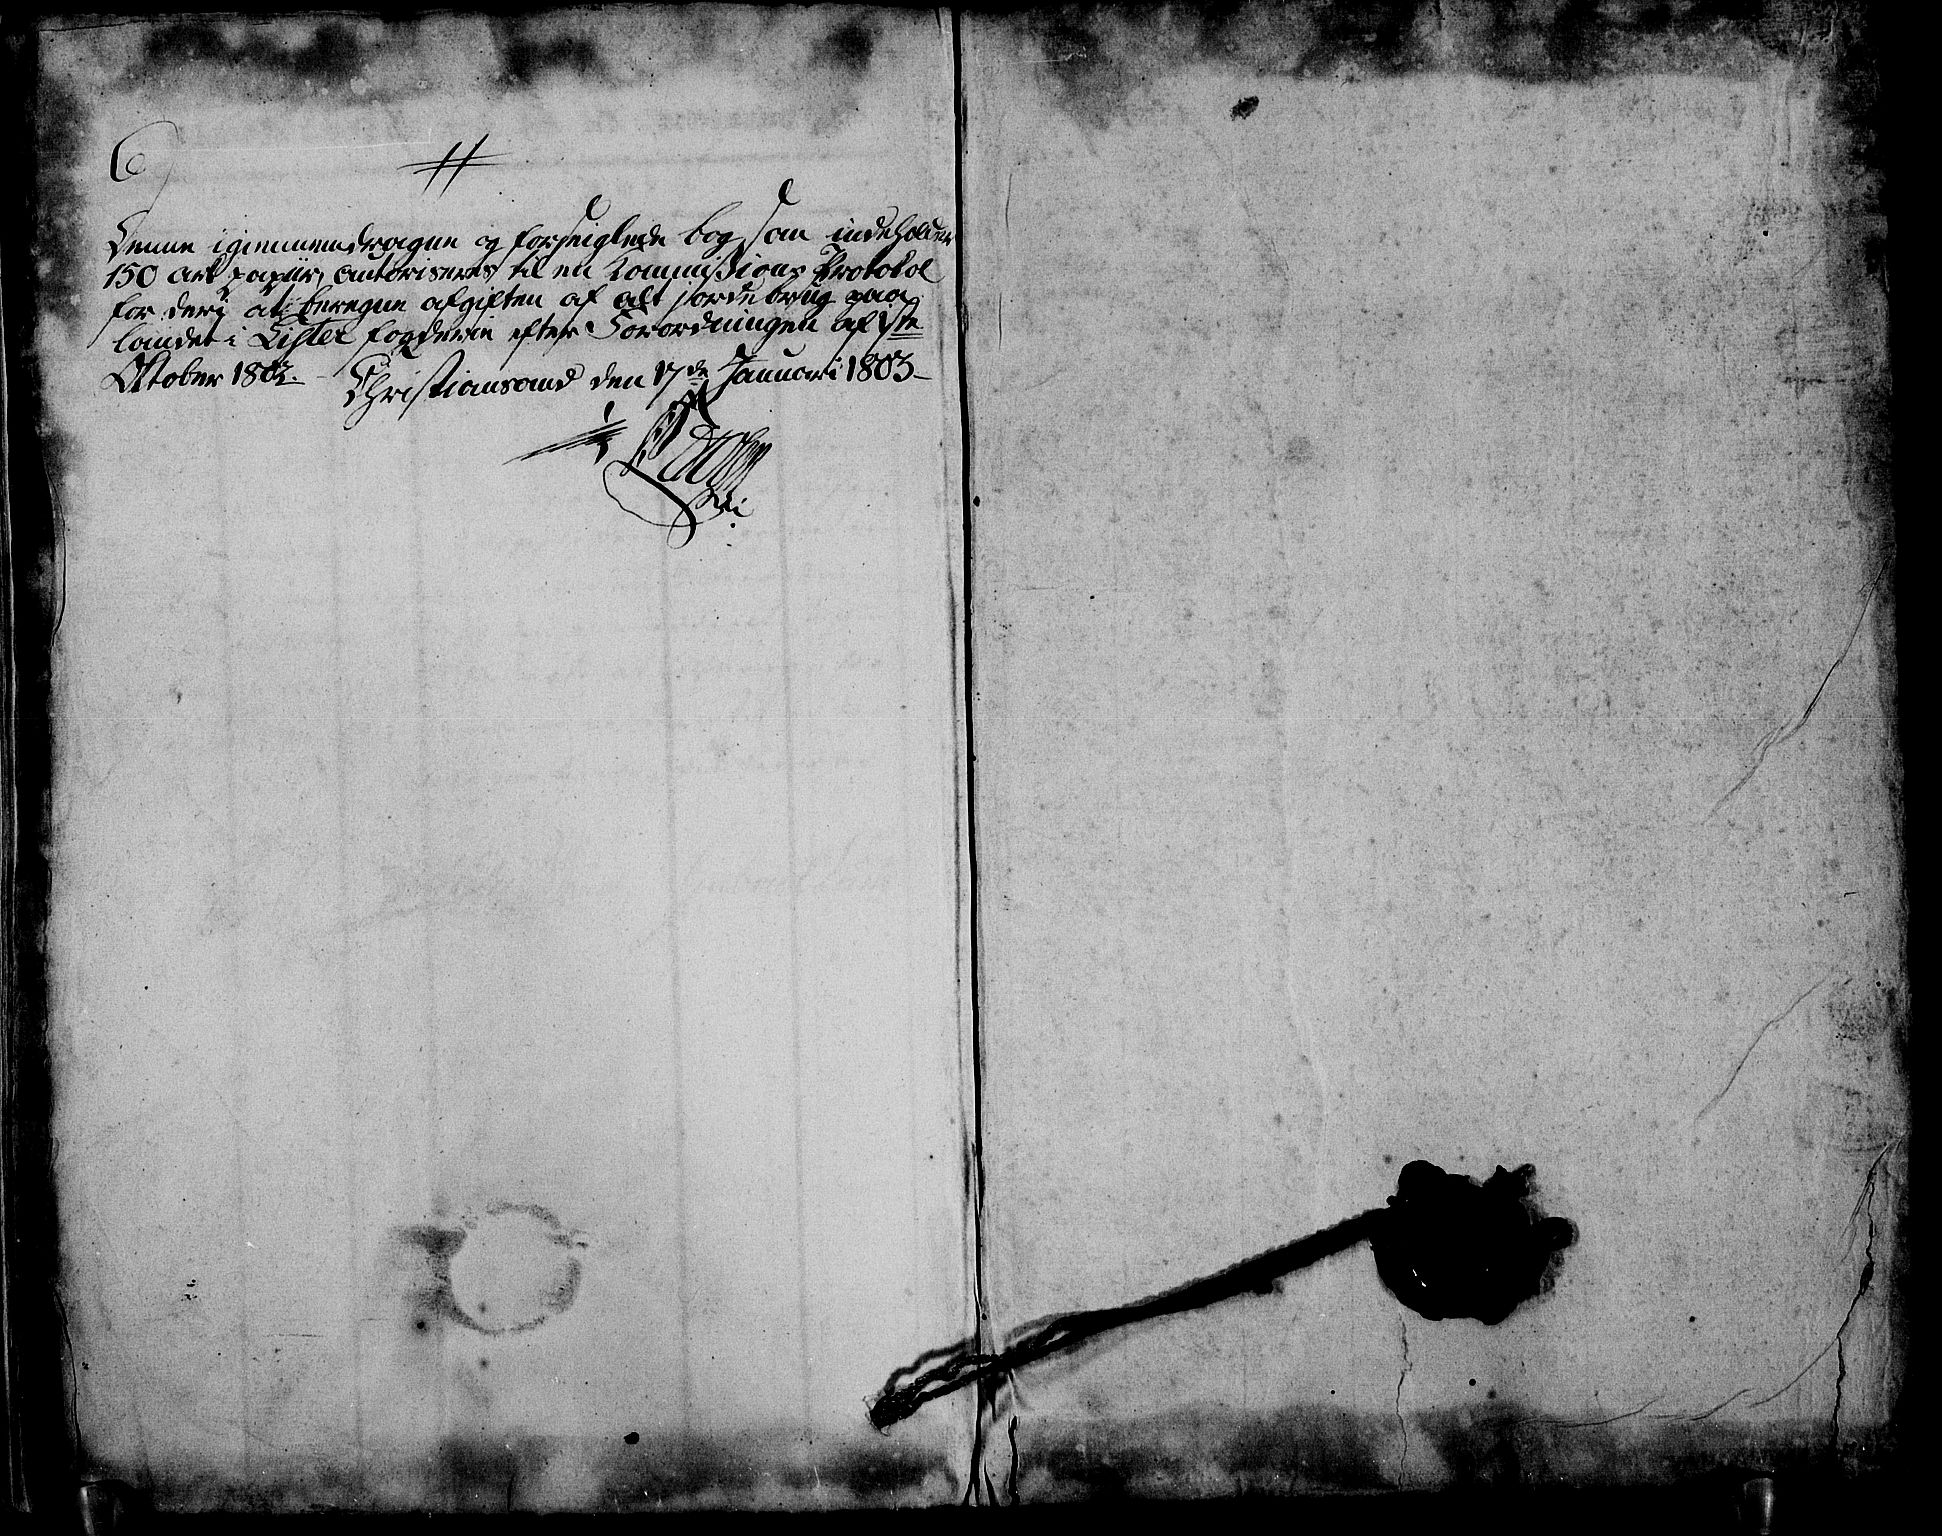 Denne igiennemdragne og forseiglede bog, som indeholder
150 ark papiir, autoriseres til en Kommissions Protokol
for derj at beregne afgiften af alt jordebrug paa
landet i Lister fogderie efter Forordningen af 1ste
Oktober 1802. Christiansand den 17de Januari 1803